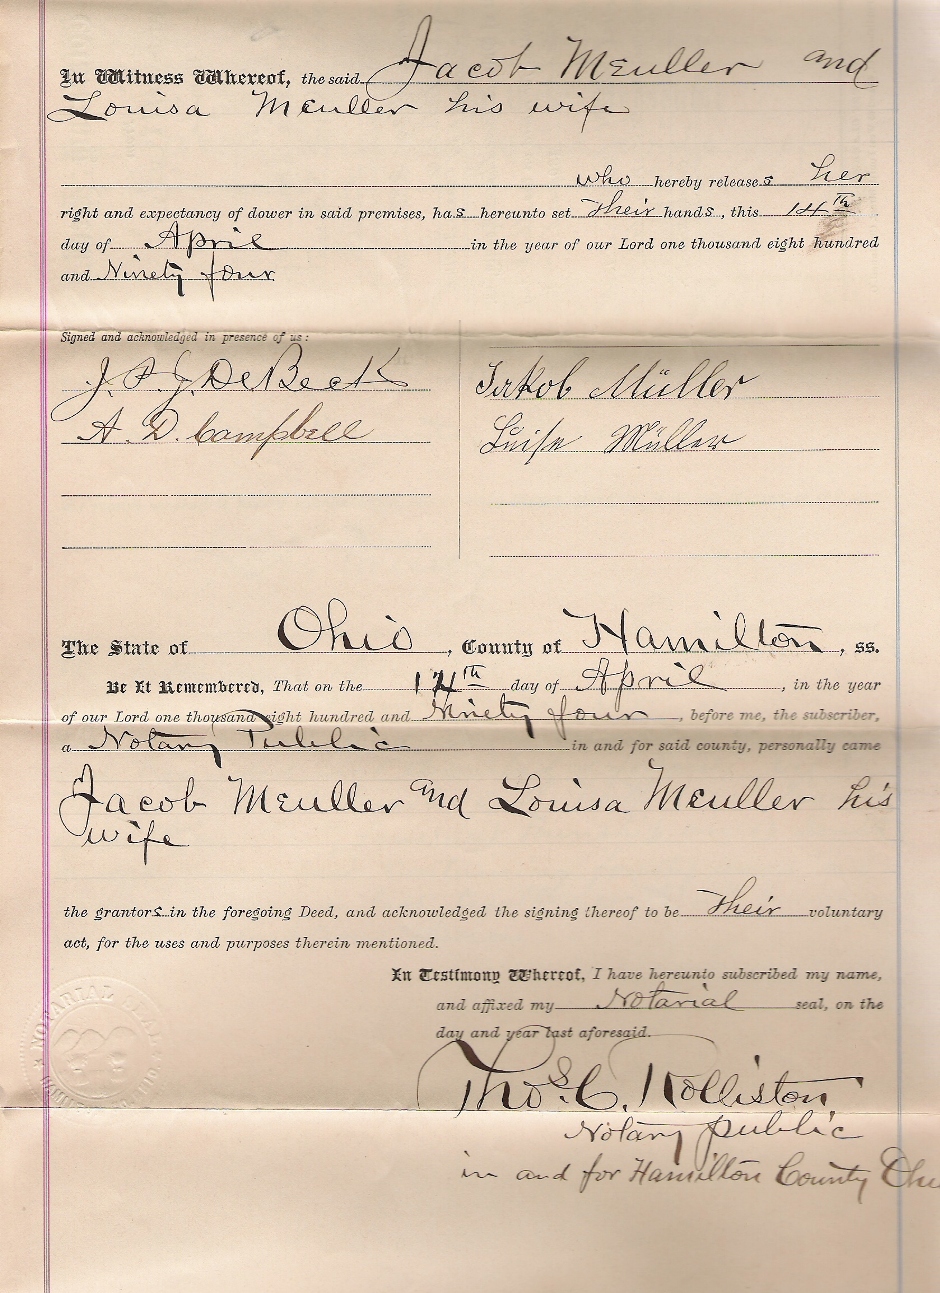 In Witness Whereof, the said Jacob Meuller and
Louisa Meuller his wife
who hereby releases her
right and expectancy of dower in said premises, has hereunto set Their hands, this 14th
day of April in the year of our Lord one thousand eight hundred
and Ninety four
Signed and acknowledged in presence of us:
J. P. J. DeBeck
A. D. Campbell
Jakob Müller
Luise Müller
The State of Ohio, County of Hamilton, ss.
Be It Remembered, That on the 14th day of April, in the year
of our Lord one thousand eight hundred and Ninety four, before me, the subscriber,
a Notary Public in and for said county, personally came
Jacob Meuller and Louisa Meuller his
wife
the grantors in the foregoing Deed, and acknowledged the signing thereof to be Their voluntary
act, for the uses and purposes therein mentioned.
In Testimony Whereof, I have hereunto subscribed my name,
and affixed my Notarial seal, on the
day and year last aforesaid.
NOTARIAL SEAL
Thos. C. Rolliston
Notary public
in and for Hamilton County Ohi